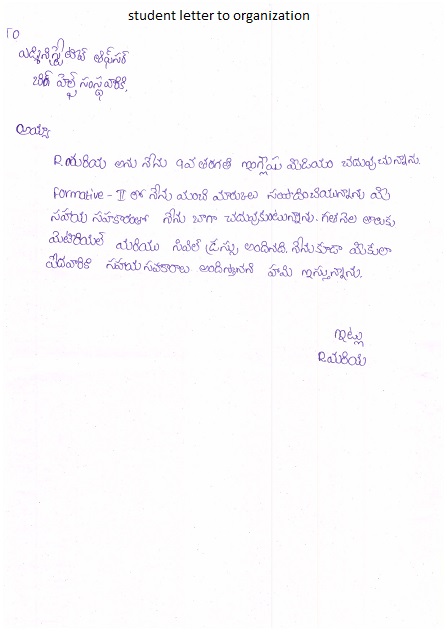 student letter to organization
To
ఎడ్మినిస్ట్రేటివ్ ఆఫీసర్
బిగ్ హెల్ప్ సంస్థ వారికి,
అయ్యా
R.మరియ అను నేను 9వ తరగతి ఇంగ్లీషు మీడియం చదువుచున్నాను.
Formative - II లో నేను మంచి మార్కులు సంపాదించియున్నాను మీ
సహాయ సహకారంతో నేను బాగా చదువుకుంటున్నాను. గత నెల తాలుకు
మెటీరియల్ మరియు సివిల్ డ్రస్సు అందినది. నేను కూడా మీకులా
పేదవారికి సహాయ సహకారాలు అందిస్తానని హామి ఇస్తున్నాను.
ఇట్లు
R.మరియ